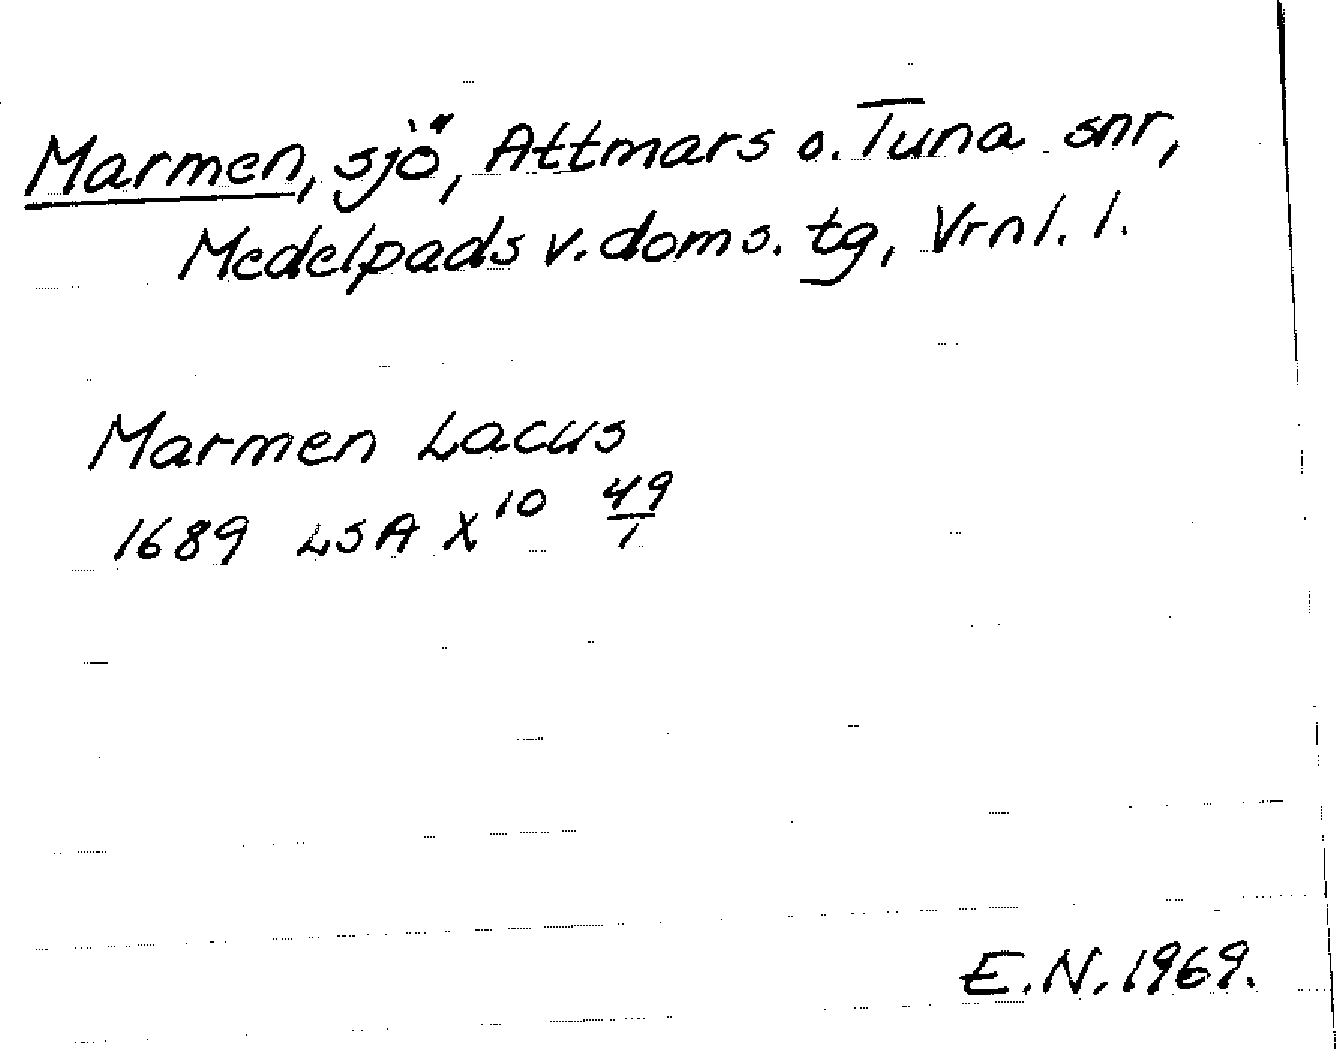 Marmen, sjö, Attmars o. Tuna snr,
Medelpads v. doms. tg, Vrnl. l.
Marmen Lacus
1689 LSA X¹⁰ 49/1
E.N. 1969.